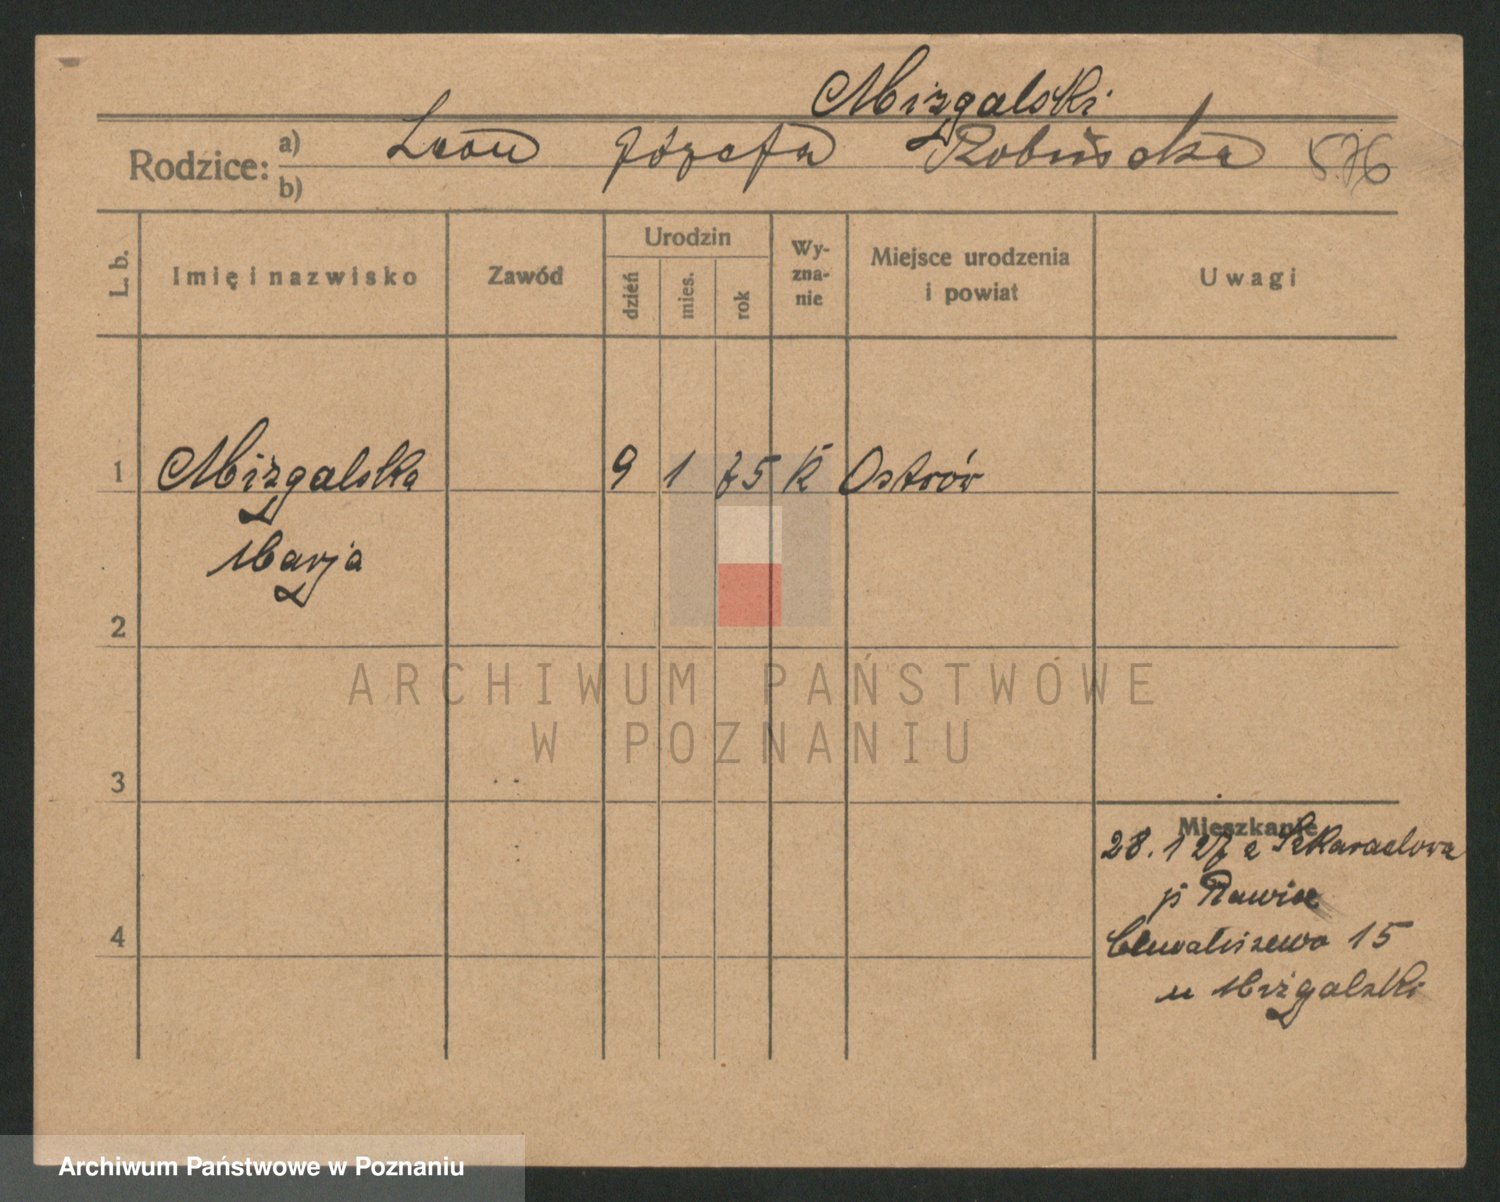 Mizgalski
Rodzice: a) Leon Józefa Robińska 576
b)
L. b.
Imię i nazwisko
Zawód
Urodzin
dzień
mies.
rok
Wy-
zna-
nie
Miejsce urodzenia
i powiat
Uwagi
1 Mizgalska 9 1 75 K Ostrów
Marja
2
ARCHIWUM PAŃSTWOWE
W POZNANIU
3
Mieszkanie
28. 1 27 z Szkaradowa
p Rawicz
4
Chwaliszewo 15
u Mizgalski
Archiwum Państwowe w Poznaniu